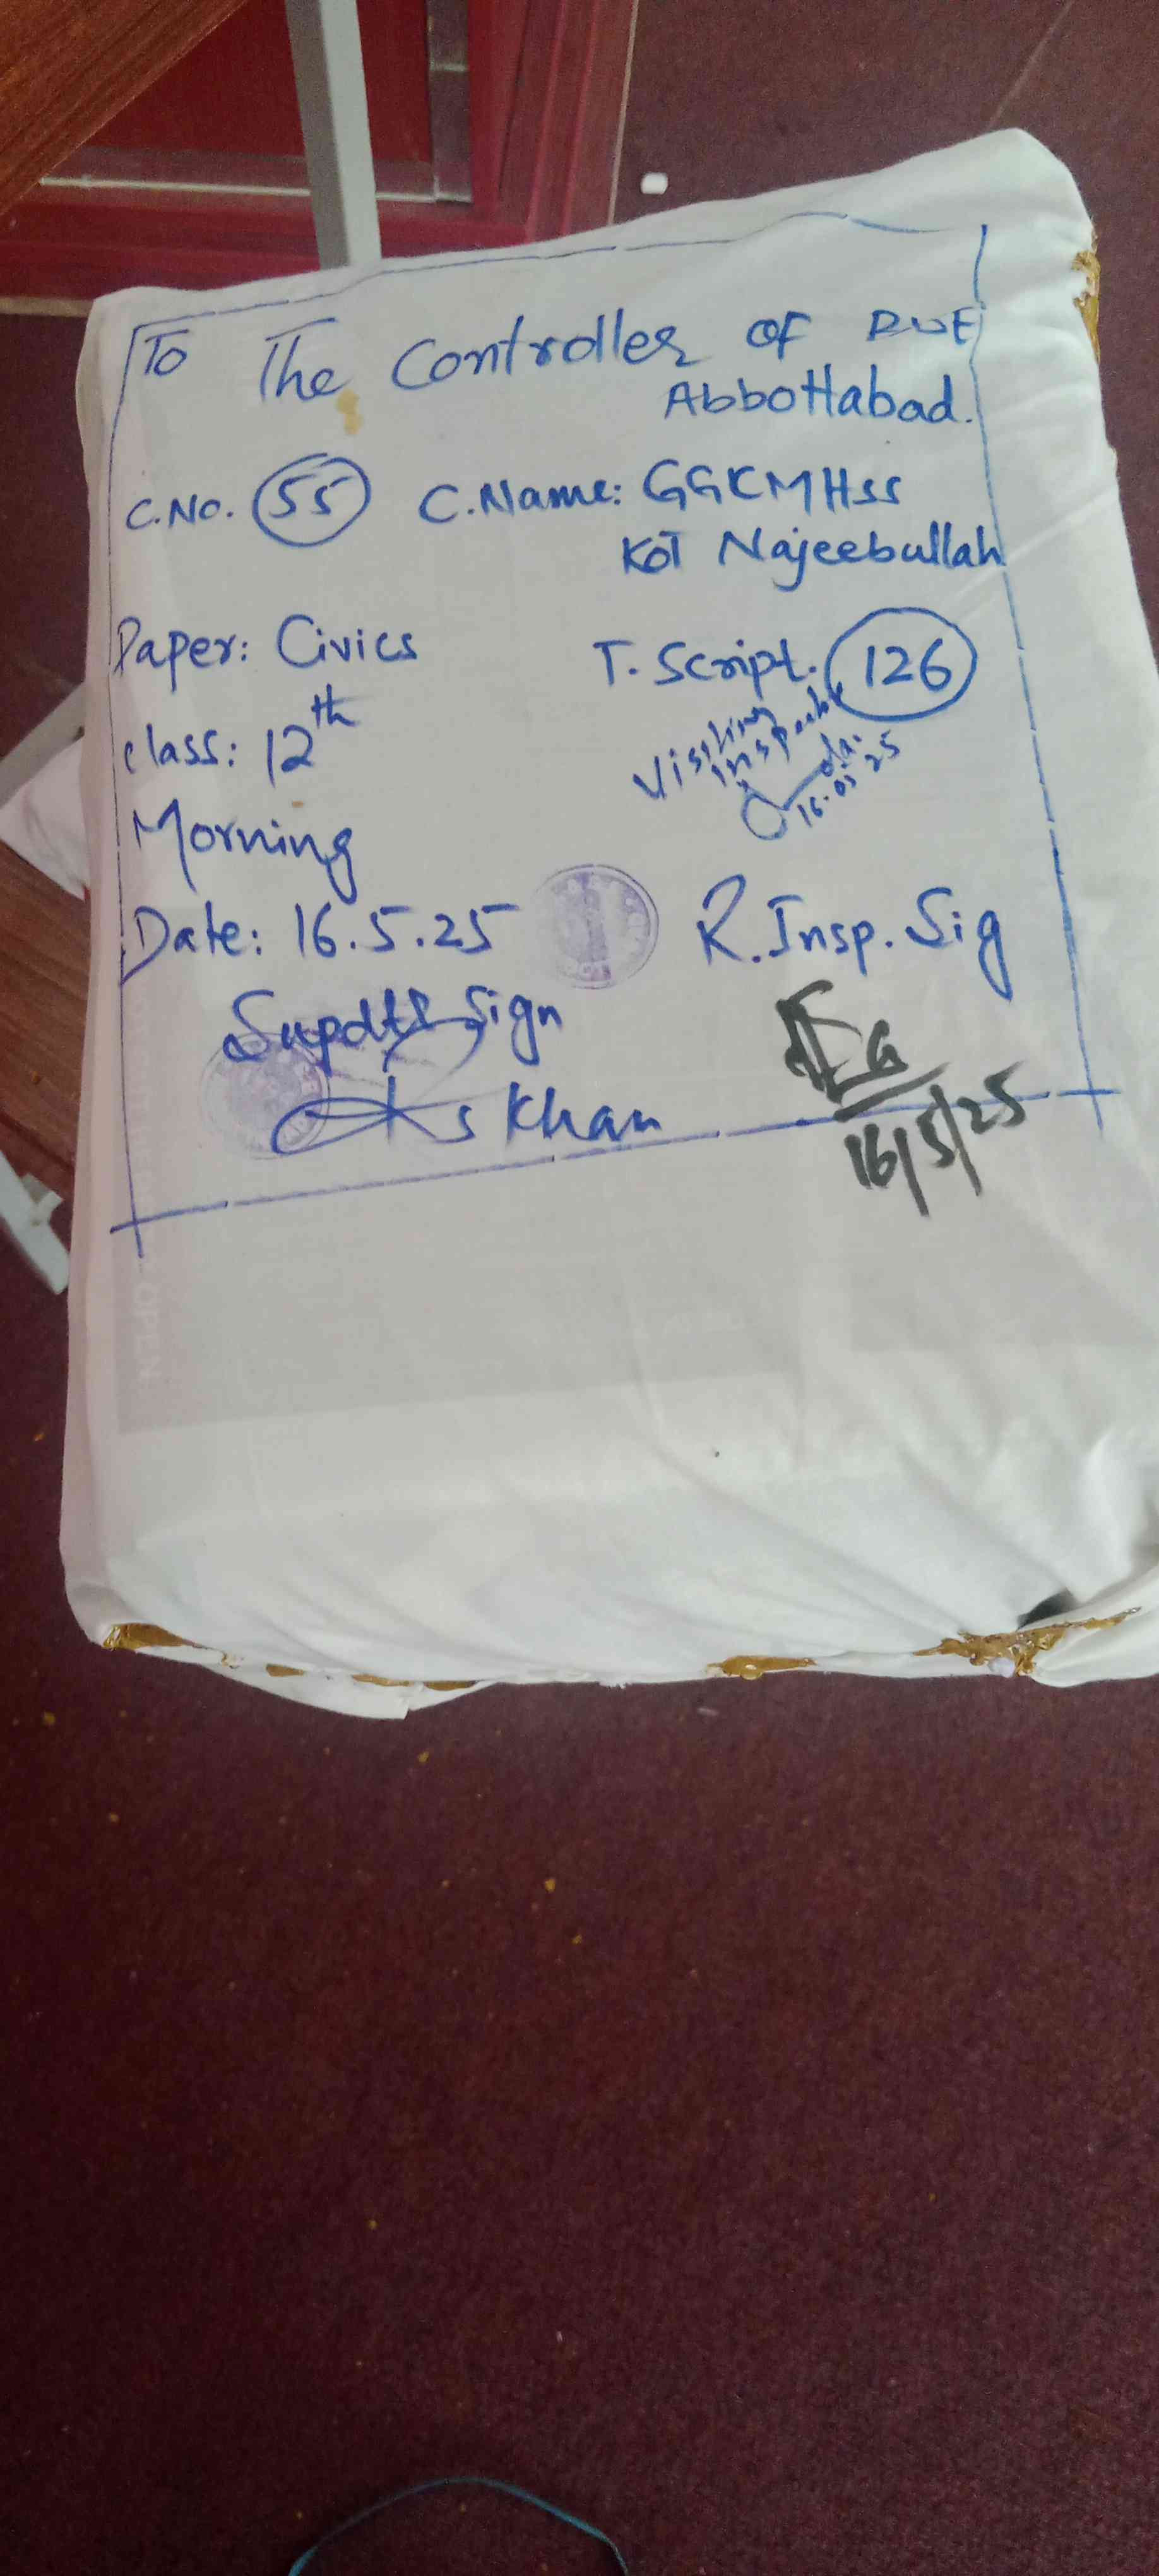 To The Controller OF BISE
Abbottabad.
C.No. 55 C.Name: GGKMHSS
Kot Najeebullah
Paper: Civics T. Script. 126
class: 12th
Visiting
inspector
16.05.25
Morning
Date: 16.5.25 R.Insp. Sig
Supdtt Sign
Khan
16/5/25
OPEN